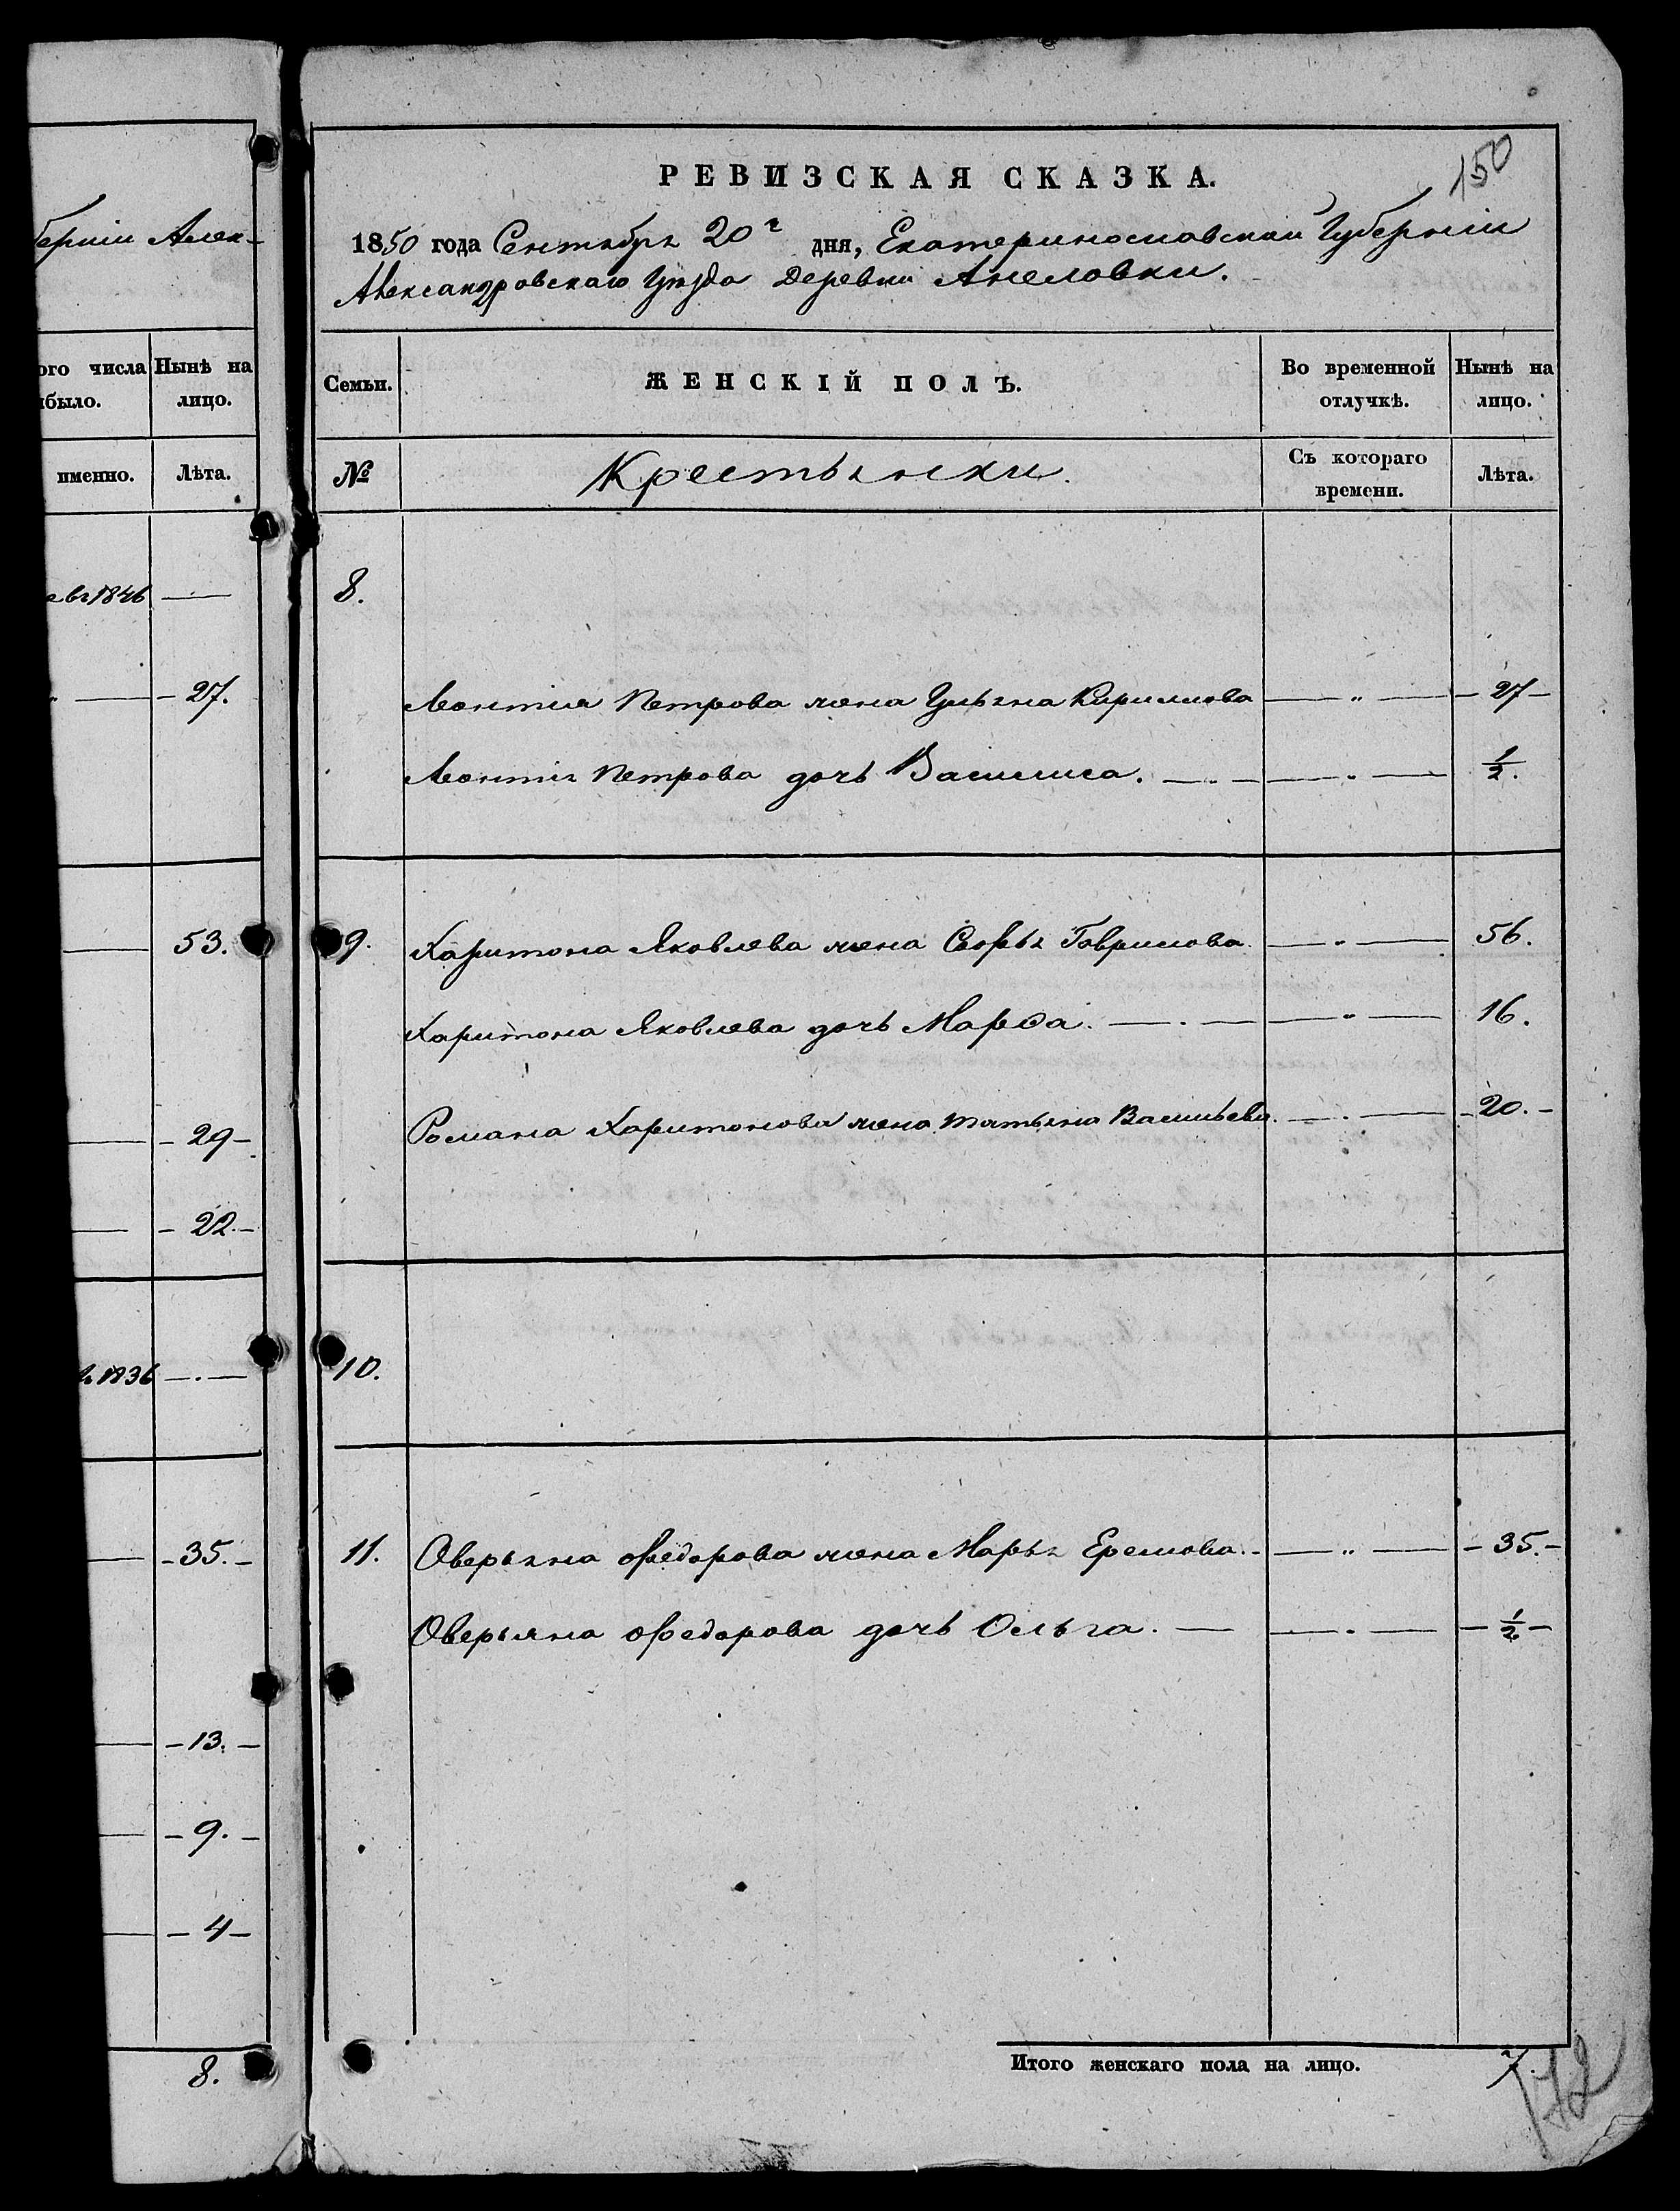 берніи Алек-
ого числа Нынѣ на
было. лицо.
именно. Лѣта.
1846 —
— 27.
— 53.
— 29 —
— 22. —
1836 — . —
— 35. —
— 13. —
— 9. —
— 4 —
8.
150
РЕВИЗСКАЯ СКАЗКА.
1850 года Сентября 20г дня, Екатеринославской Губерніи
Александровскаго Уѣзда Деревни Анеловки.
Семьи. ЖЕНСКІЙ ПОЛЪ. Во временной Нынѣ на
отлучкѣ. лицо.
№ Крестьянки. Съ котораго Лѣта.
времени.
8.
Леонтія Петрова жена Ульяна Кирилова — „ — 27 —
Леонтія Петрова дочь Василиса. — „ — ½.
9. Харитона Яковлева жена Софья Гаврилова. — „ — 56.
Харитона Яковлева дочь Марѳа. — „ — 16.
Романа Харитонова жена Татьяна Васильева. — „ — 20. —
10.
11. Оверьяна Федорова жена Марья Еремова. — „ — 35. —
Оверьяна Федорова дочь Ольга. — „ — ½ —
Итого женскаго пола на лицо. 7.
172